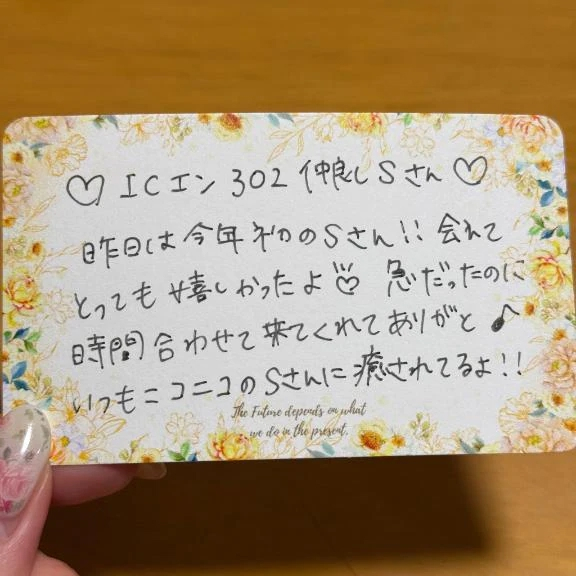 ♡ ICエン 302 仲良しSさん ♡
昨日は今年初のSさん!! 会れて
とっても嬉しかったよ♡ 急だったのに
時間合わせて来てくれてありがと♪
いつもニコニコのSさんに癒されてるよ!!
The Future depends on what
we do in the present.